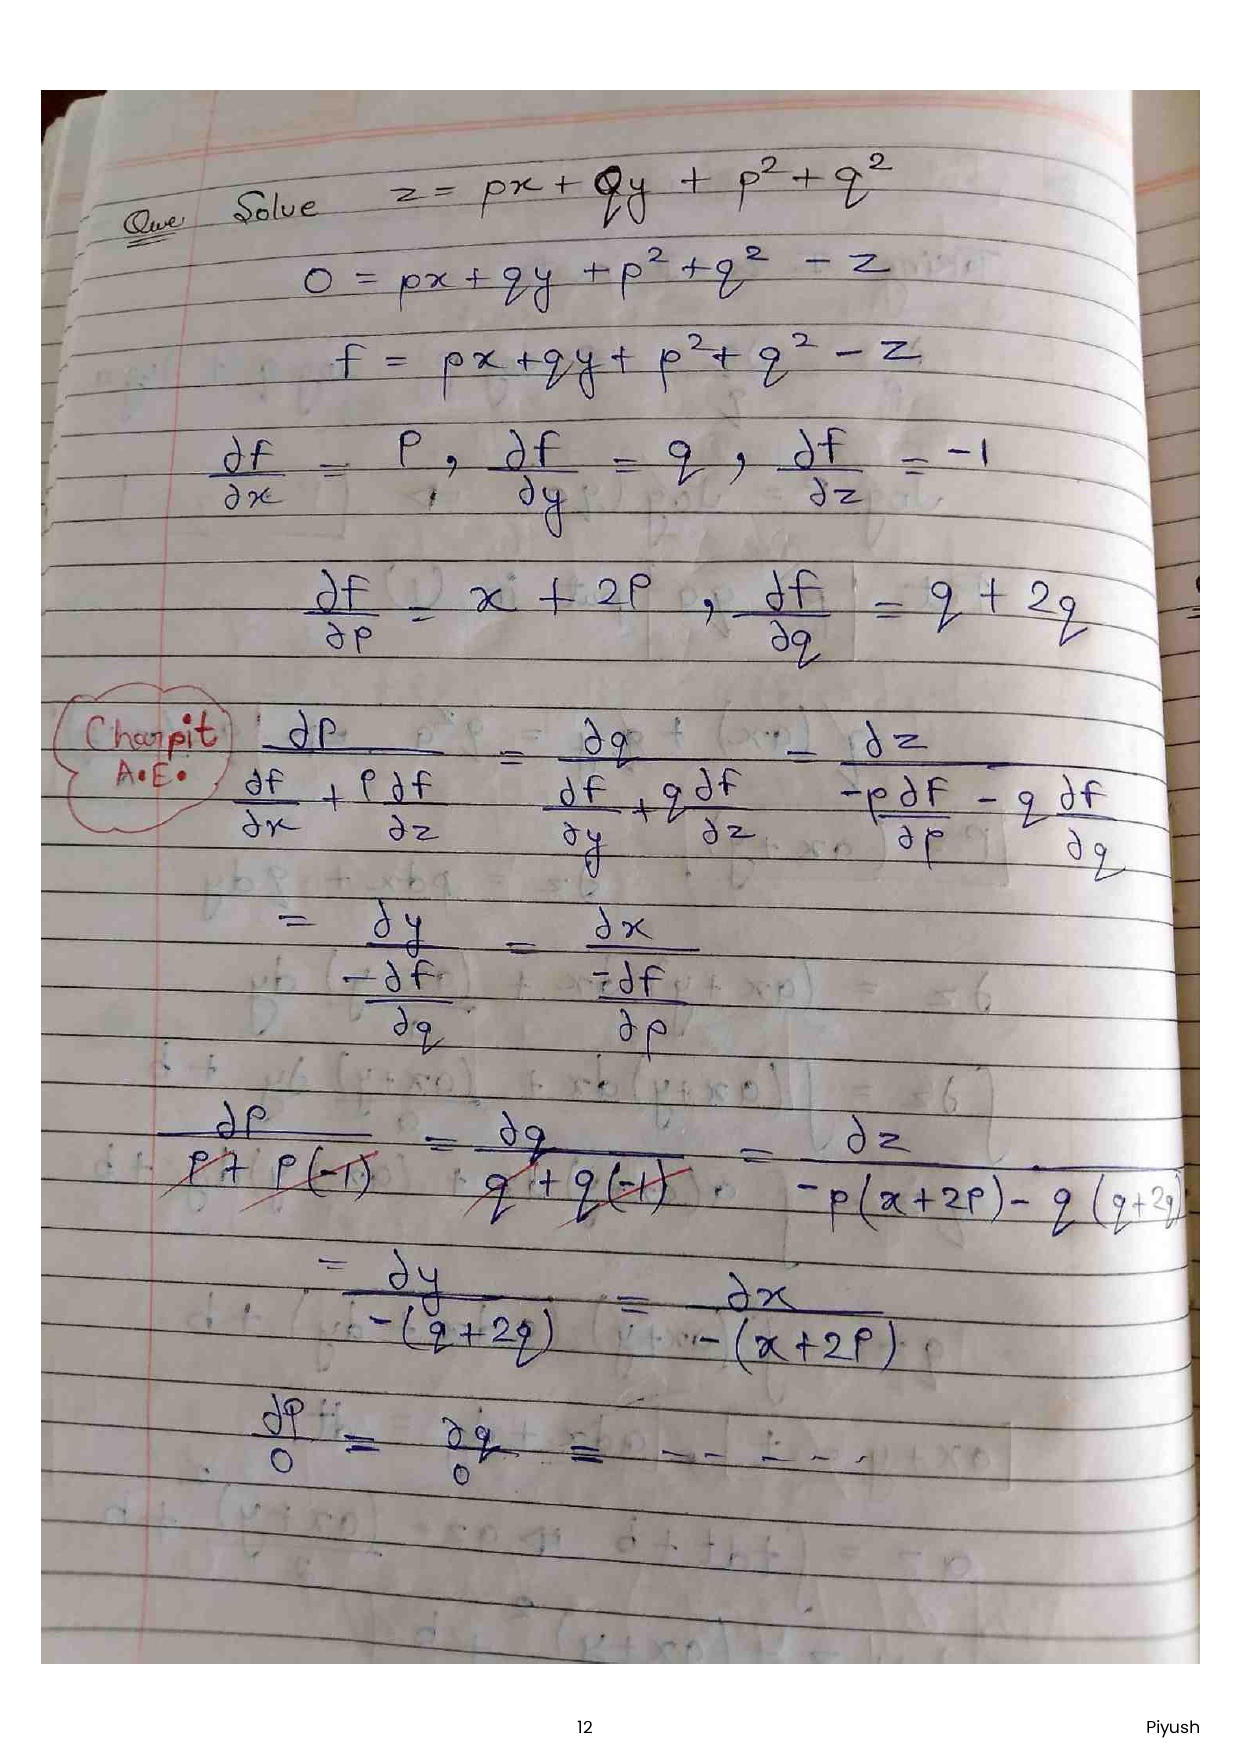 Que Solve z = px + Qy + p² + q²
0 = px + qy + p² + q² - z
f = px + qy + p² + q² - z
∂f/∂x = P, ∂f/∂y = q, ∂f/∂z = -1
∂f/∂p = x + 2P, ∂f/∂q = q + 2q
Charpit A.E.
∂P/(∂f/∂x + P ∂f/∂z) = ∂q/(∂f/∂y + q ∂f/∂z) = ∂z/(-p ∂f/∂p - q ∂f/∂q)
= ∂y/(-∂f/∂q) = ∂x/(-∂f/∂p)
∂P/(P + P(-1)) = ∂q/(q + q(-1)) = ∂z/(-p(x+2P) - q(q+2q)
= ∂y/(-(q+2q)) = ∂x/(-(x+2P))
∂P/0 = ∂q/0 = - - - - - .
12 Piyush